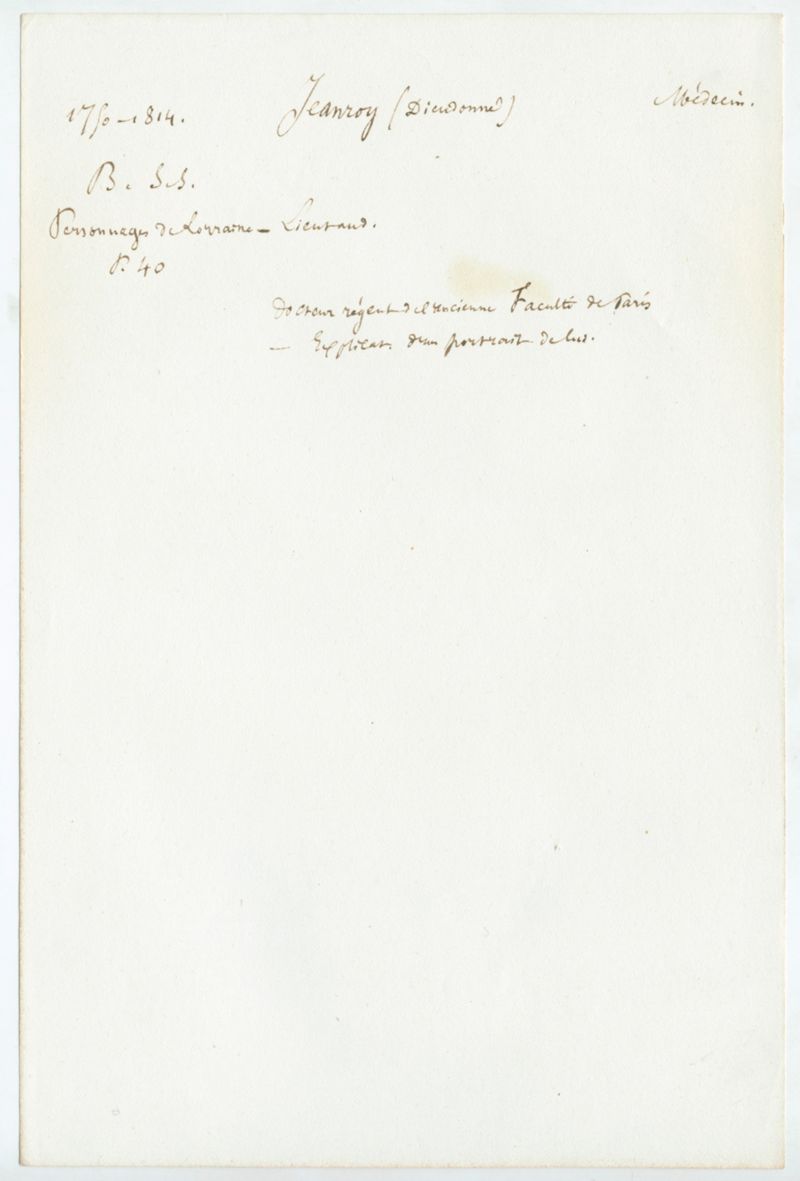 1750-1814. Jeanroy (Dieudonné) Médecin.
B. S.S.
Personnages de Lorraine - Lieutaud.
P. 40
Docteur régent de l'ancienne Faculté de Paris
— Explicat. d'un portrait de lui.